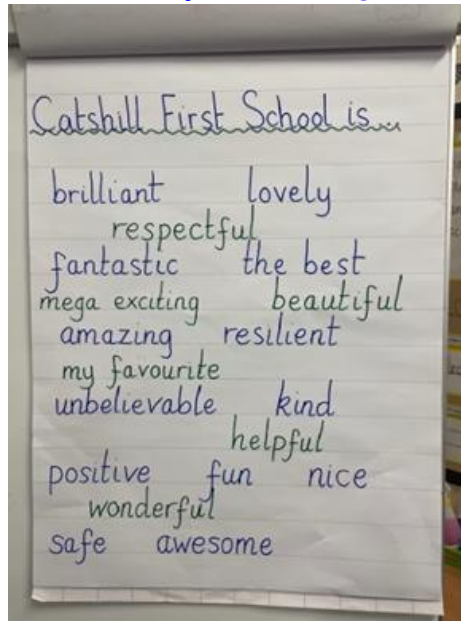 Catshill First School is...
brilliant lovely
respectful
fantastic the best
mega exciting beautiful
amazing resilient
my favourite
unbelievable kind
helpful
positive fun nice
wonderful
safe awesome